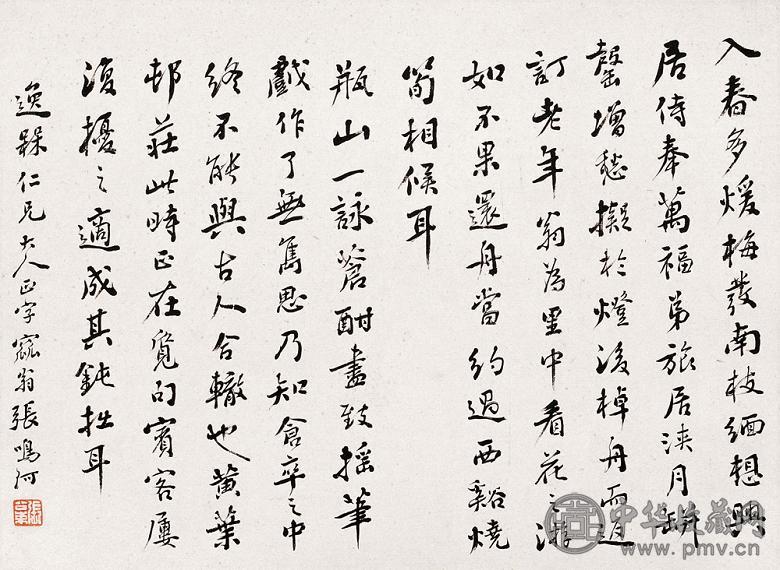 入春多煖梅發南枝緬想興
居侍奉萬福弟旅居浹月缾
罄增愁擬於燈後棹舟而過
訂老年翁為里中看花之游
如不果還舟當約過西谿燒
筍相候耳
瓶山一詠蒼酣盡致搖筆
戲作了無雋思乃知倉卒之中
終不能與古人合轍也黃葉
邨莊此時正在覓句賓客屢
復擾之適成其鈍拙耳
逸槑仁兄大人正字 窳翁張鳴珂
中华收藏网
www.pmv.cn